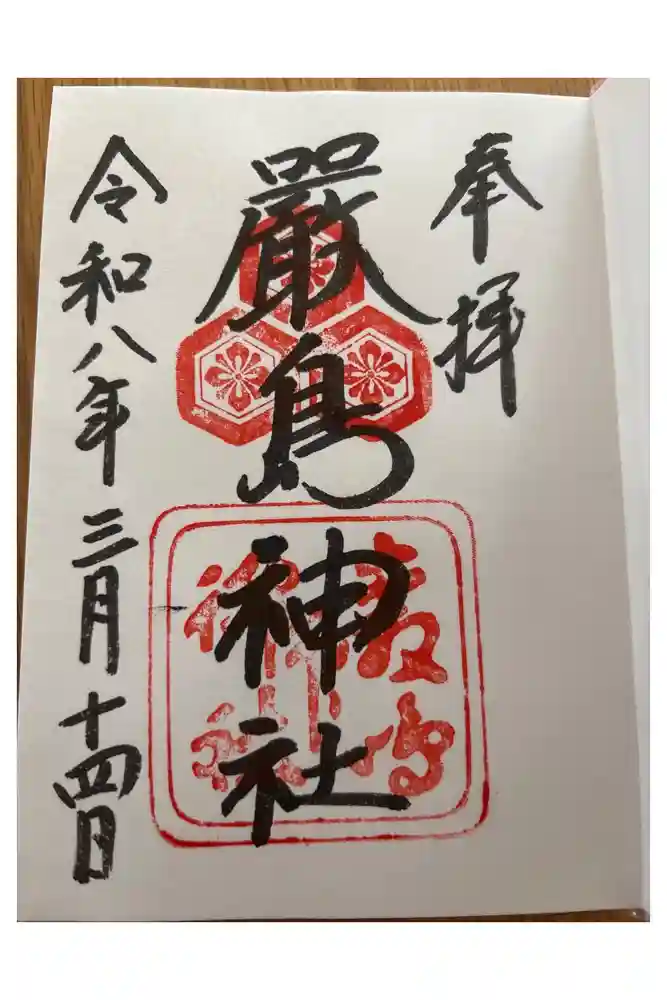 奉拝
厳島神社
令和八年三月十四日